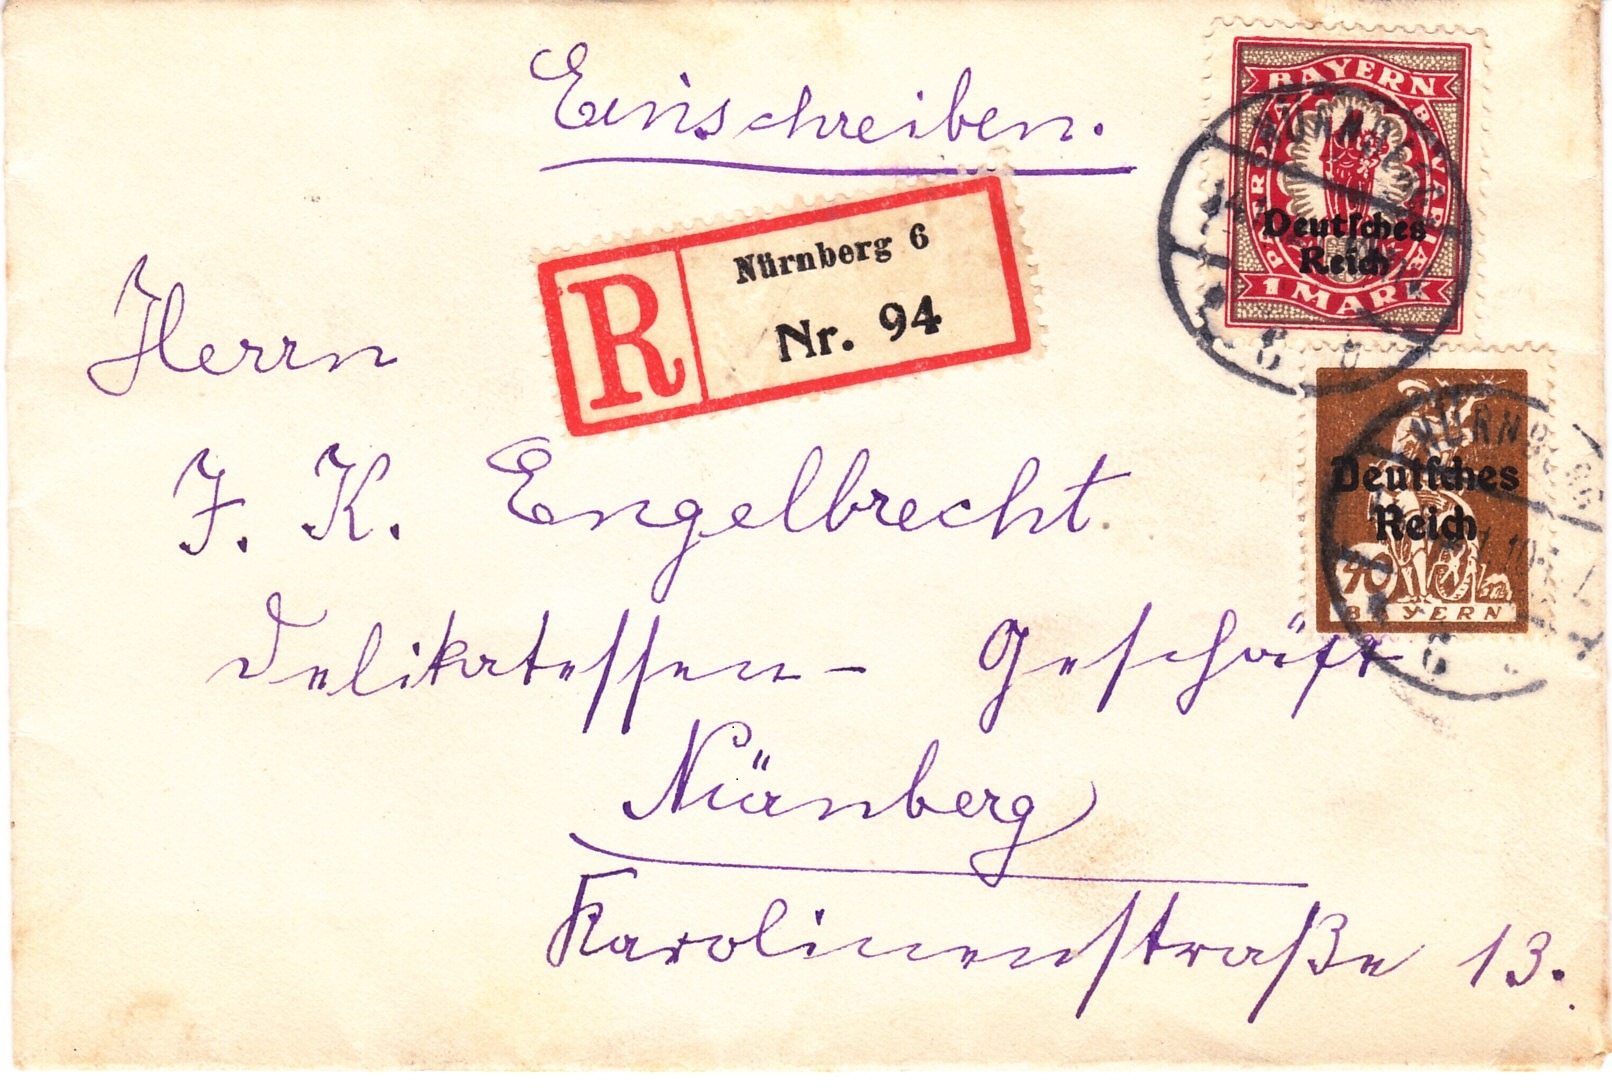 Einschreiben.
R
Nürnberg 6
Nr. 94
BAYERN
Deutsches
Reich
1 MARK
NÜRNBERG
Deutsches
Reich
40
BAYERN
NÜRNBERG
6
Herrn
J. K. Engelbrecht
Delikatessen- Geschäft
Nürnberg
Karolinenstraße 13.